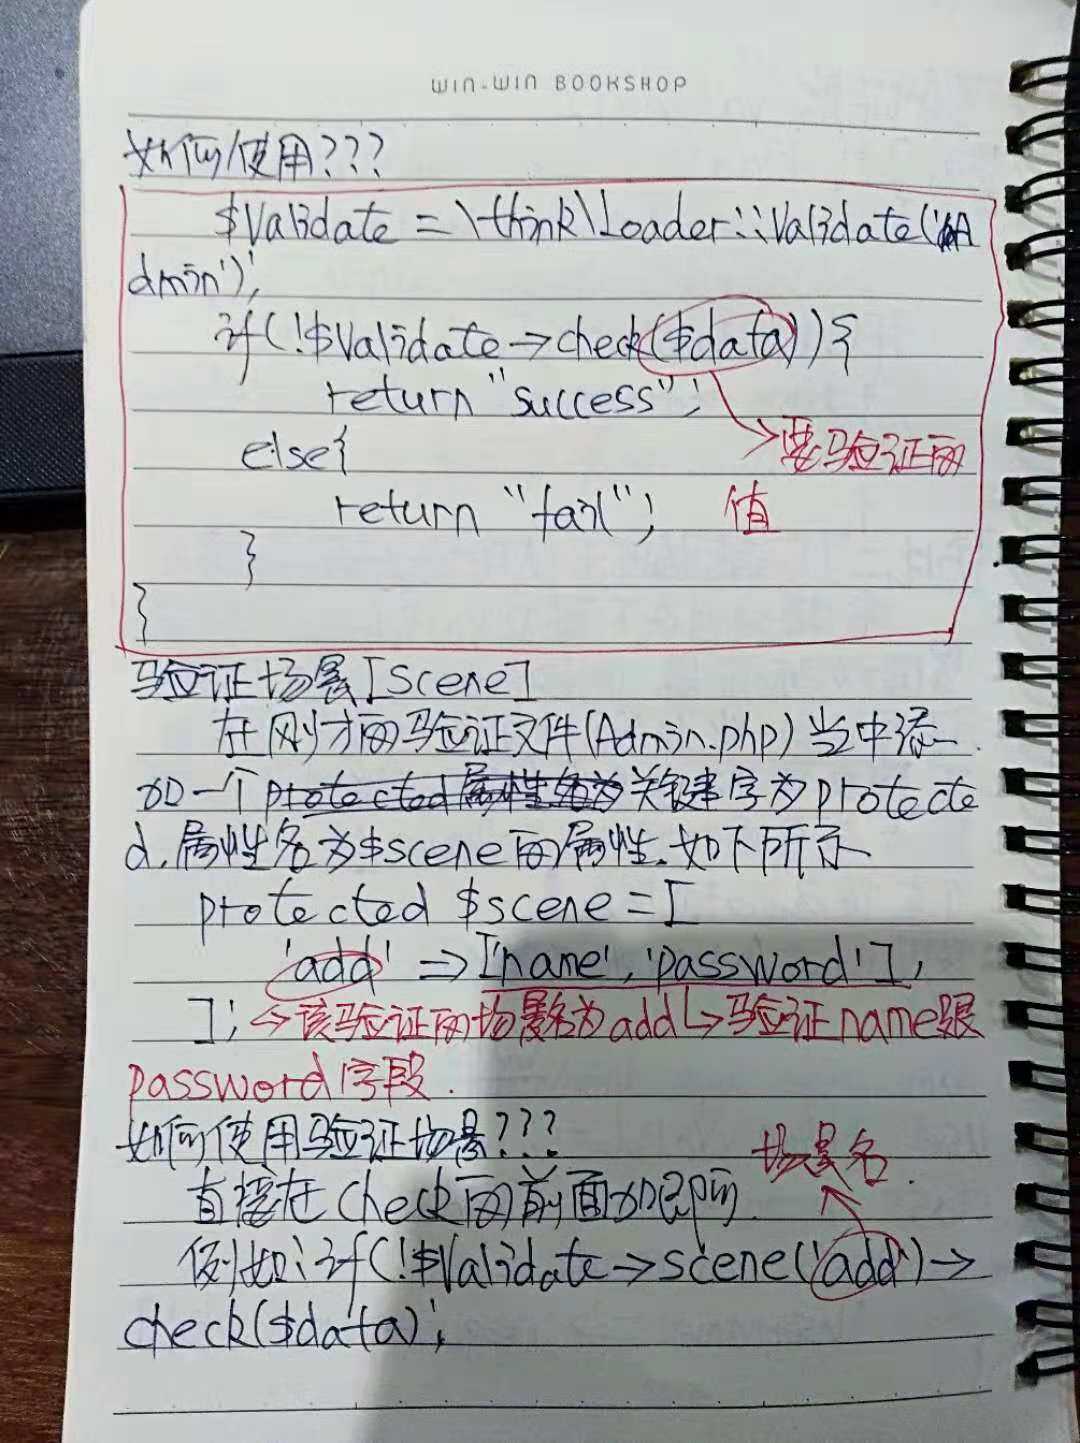 WIN-WIN BOOKSHOP
如何使用???
$Validate = \think\Loader::Validate('A
dmin');
if(!$Validate->check($data)){
return "success";
else{
要验证的
return "fail";
值
}
}
验证场景[scene]
在刚才的验证文件(Admin.php)当中添
加一个protected属性名为关键字为protecte
d,属性名为$scene的属性.如下所示
protected $scene=[
'add' => ['name','password'],
];→该验证的场景名为add↳验证name跟
password字段.
如何使用验证场景???
场景名.
直接在check的前面加即可.
例如:if(!$Validate->scene('add')->
check($data);